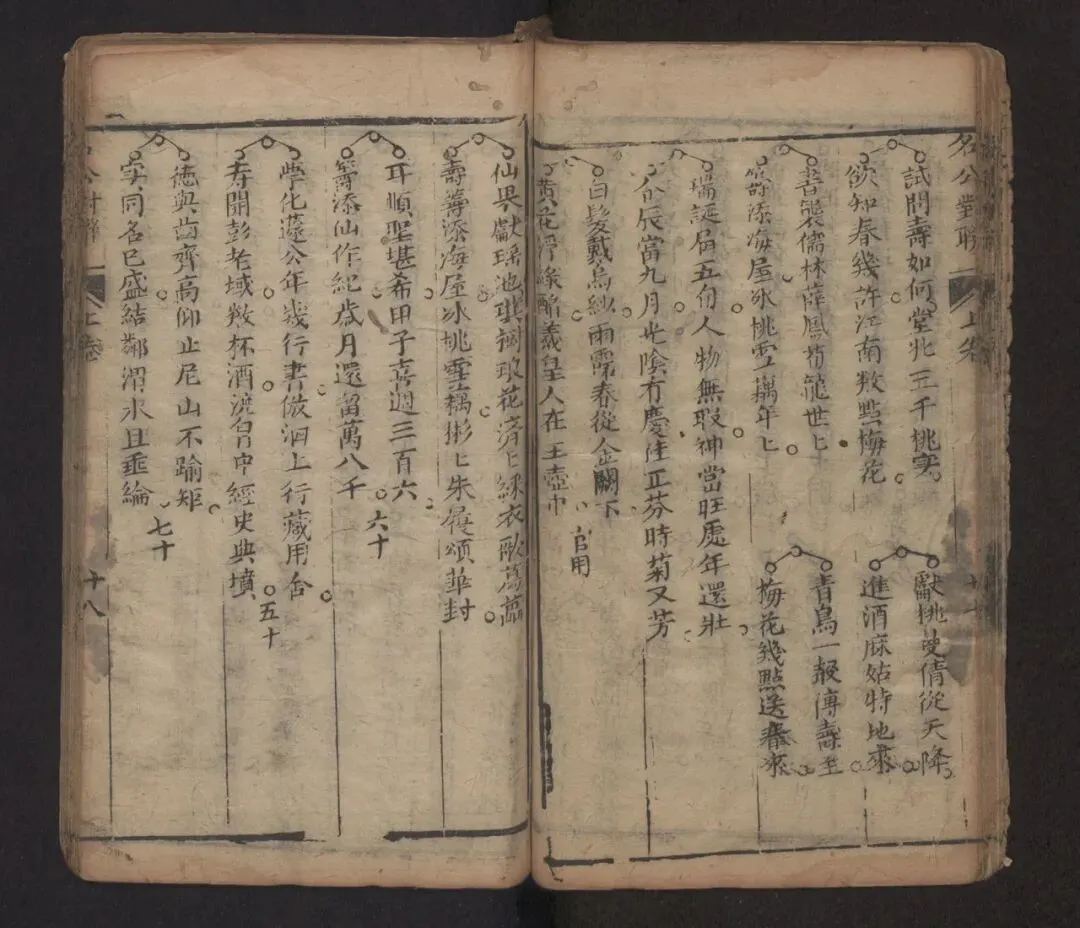 名公對聯 上卷
試問壽如何堂北三千桃实
欲知春幾許江南数點梅花
獻桃曼倩從天降
進酒麻姑特地來
書襲儒林薛鳳荀龍世〻
籌添海屋冰桃雪藕年〻
青鳥一聲傳壽至
梅花幾點送春來
瑞誕届五旬人物無瑕神當旺處年還壯
辰當九月光陰有慶佳正芬時菊又芳
白髮戴烏紗雨露春從金闕下
黄花浮綠酩羲皇人在玉壺巾
官用
仙果獻瑶池琪樹琅花濟〻綵衣歌萬
壽籌添海屋冰桃雪藕彬〻朱履頌華封
耳順聖堪希甲子喜週三百六
籌添仙作紀歳月還留萬八千
六十
學化蘧公年幾行書倣泗上行藏用舍
寿開彭老域数杯酒流胷中經史典墳
五十
德與齒齊高仰止尼山不踰矩
实同名已盛結鄰渭水且垂綸
七十
名公對聯 上卷 十八